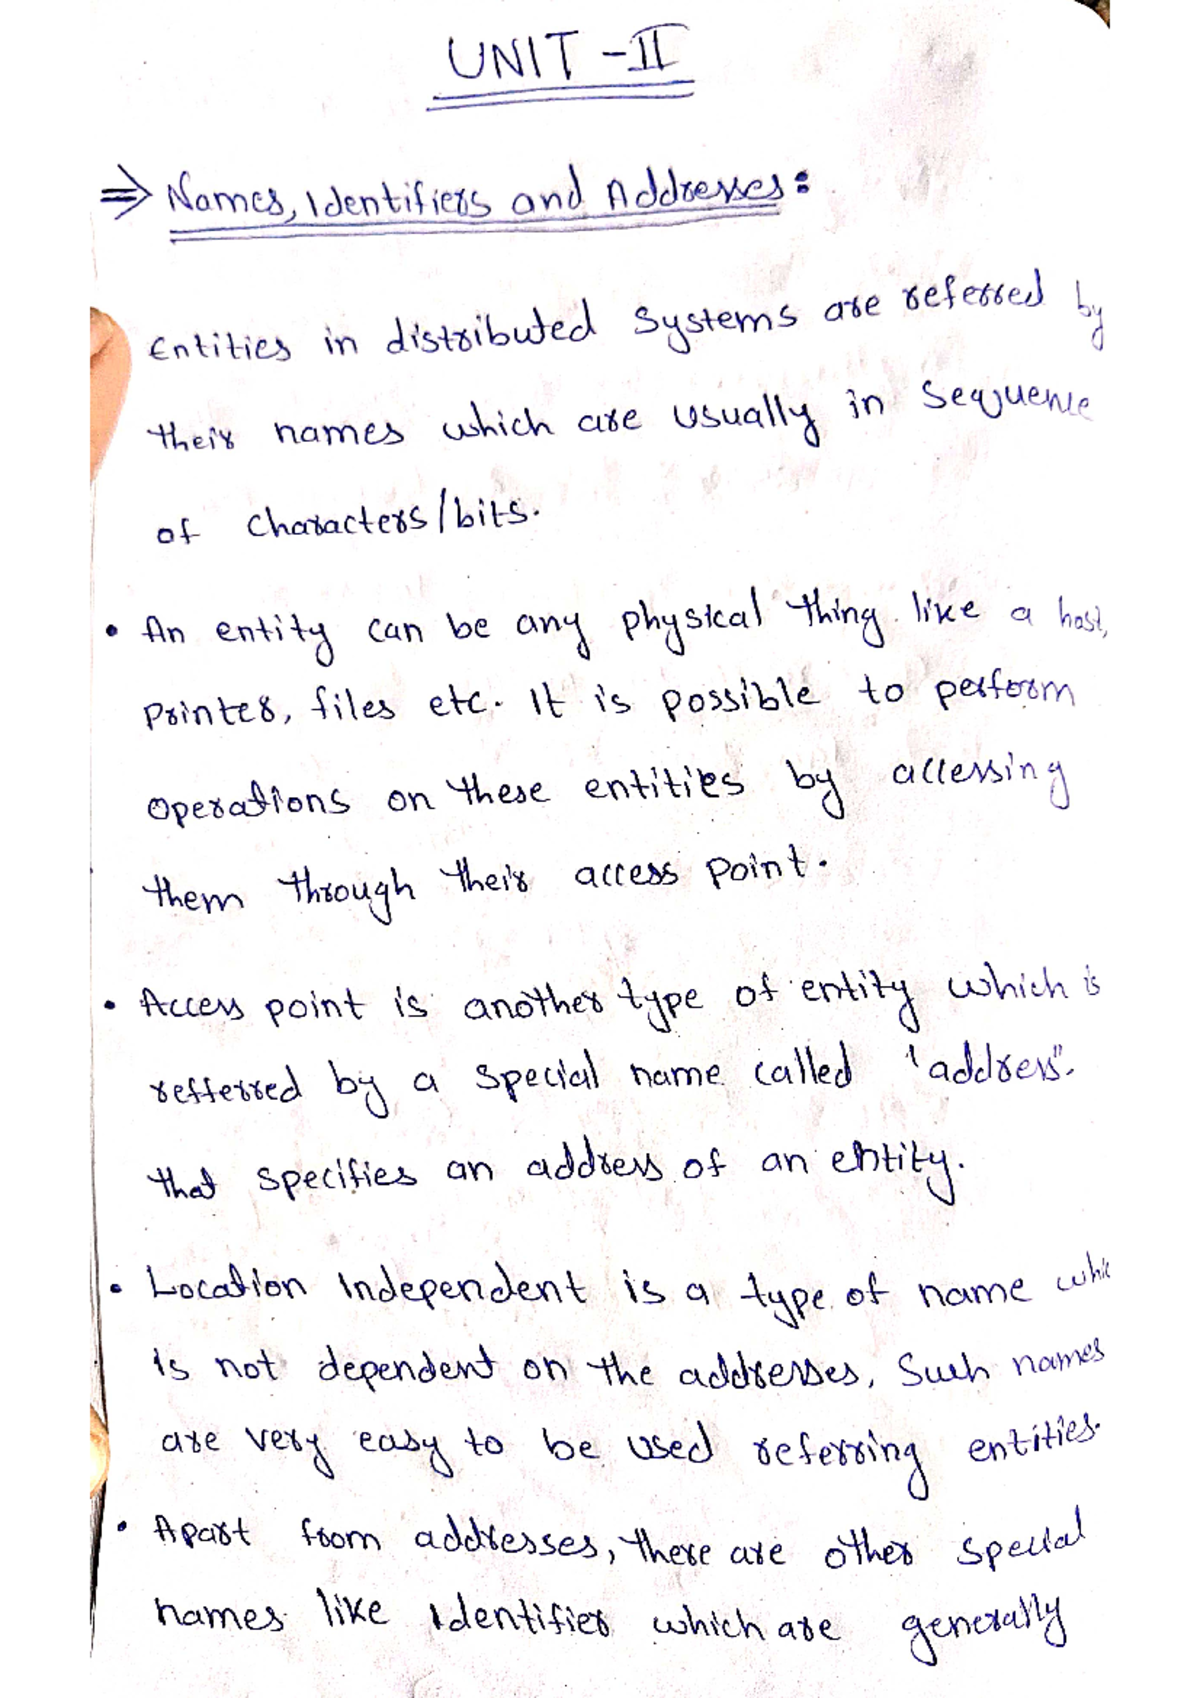 UNIT -II
⇒ Names, Identifiers and Addresses:
Entities in distributed systems are referred by
their names which are usually in sequence
of characters/bits.
• An entity can be any physical thing like a host,
printer, files etc. It is possible to perform
operations on these entities by accessing
them through their access point.
• Access point is another type of entity which is
refferred by a special name called "address".
that specifies an address of an entity.
• Location Independent is a type of name whic
is not dependent on the addresses, such names
are very easy to be used referring entities.
• Apart from addresses, there are other special
names like Identifier which are generally